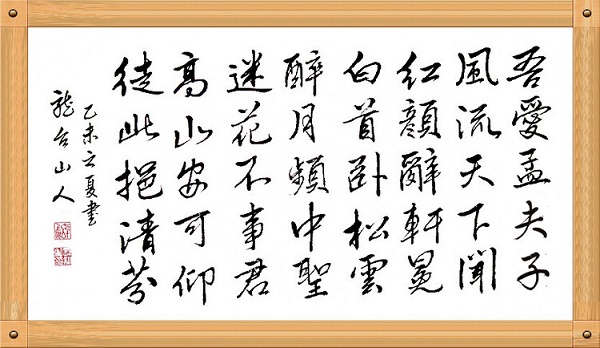 吾愛孟夫子
風流天下聞
紅顏辭軒冕
白首卧松雲
醉月頻中聖
迷花不事君
高山安可仰
徒此挹清芬
乙未之夏書
龍台山人